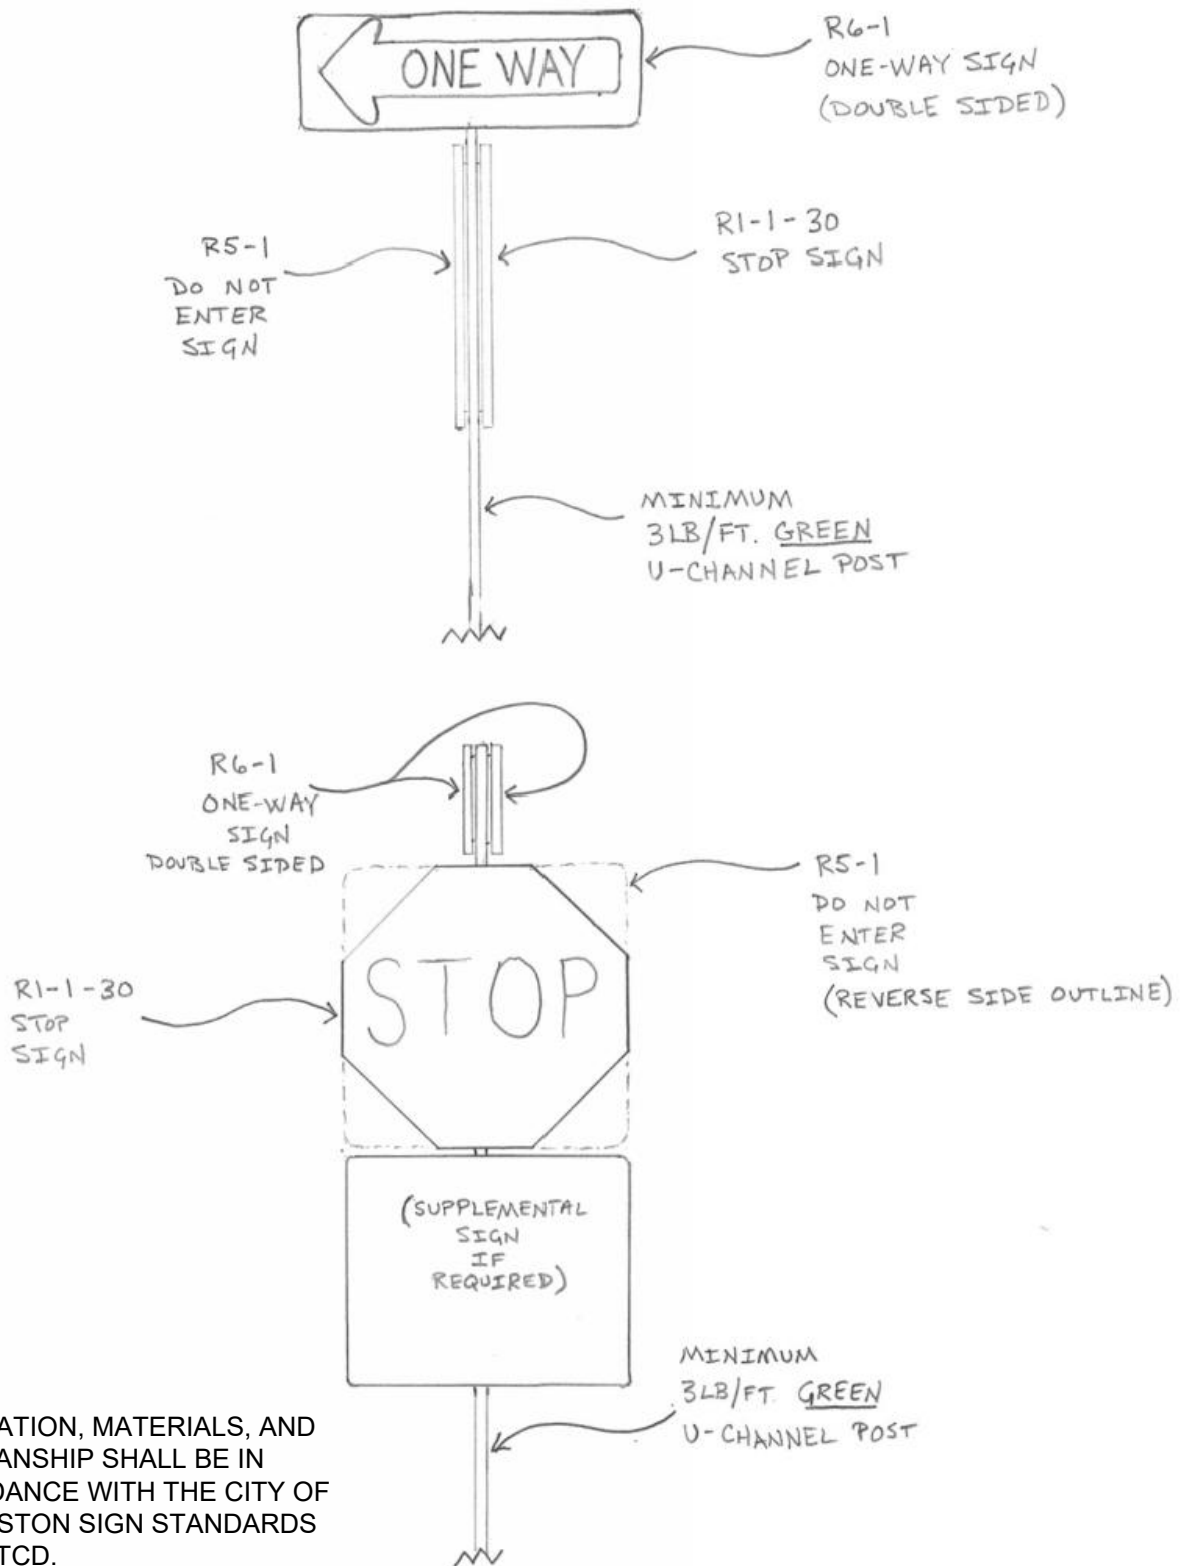 ONE WAY
R6-1
ONE-WAY SIGN
(DOUBLE SIDED)
R5-1
DO NOT
ENTER
SIGN
R1-1-30
STOP SIGN
MINIMUM
3LB/FT. GREEN
U-CHANNEL POST
R6-1
ONE-WAY
SIGN
DOUBLE SIDED
R5-1
DO NOT
ENTER
SIGN
(REVERSE SIDE OUTLINE)
R1-1-30
STOP
SIGN
STOP
(SUPPLEMENTAL
SIGN
IF
REQUIRED)
MINIMUM
3LB/FT. GREEN
U-CHANNEL POST
ATION, MATERIALS, AND
ANSHIP SHALL BE IN
DANCE WITH THE CITY OF
STON SIGN STANDARDS
TCD.